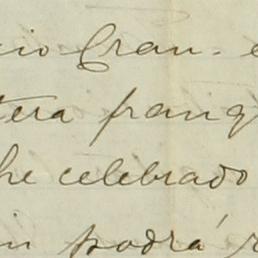 cio Gran. e
tera franq
he celebrado
in podrá r